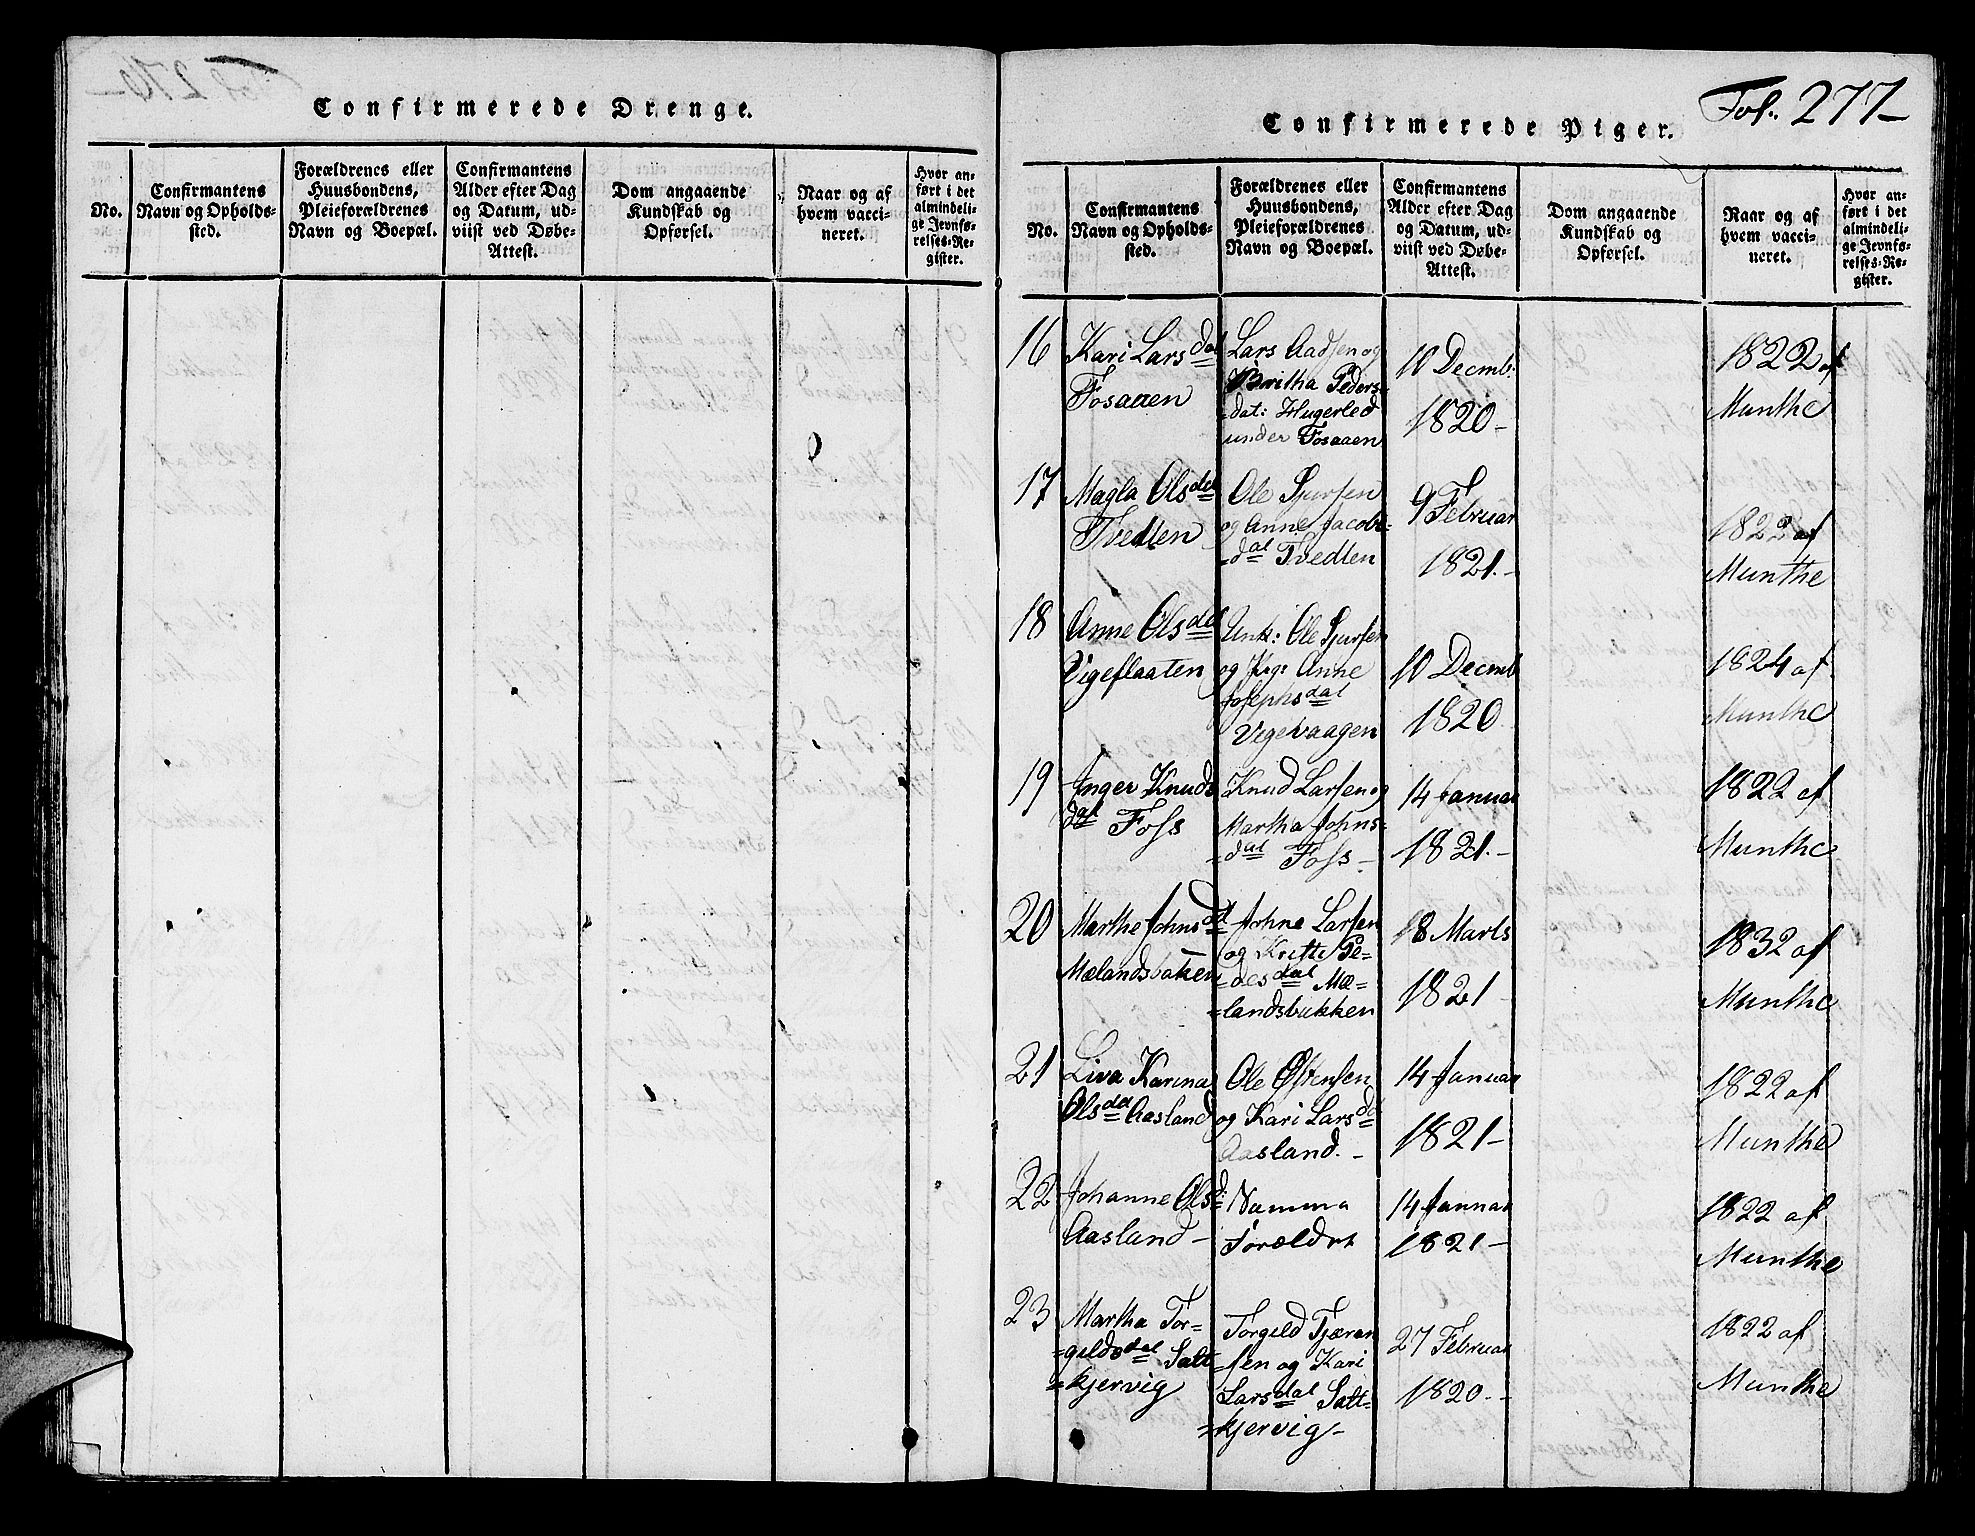 Confirmerede Drenge.
No.
Confirmantens
Navn og Opholds-
sted.
Forældrenes eller
Huusbondens,
Pleieforældrenes
Navn og Boepæl.
Confirmantens
Alder efter Dag
og Datum, ud-
viist ved Døbe-
Attest.
Dom angaaende
Kundskab og
Opførsel.
Naar og af
hvem vacci-
neret.
Hvor an-
ført i det
almindeli-
ge Jevnfø-
relses-Re-
gister.
Fol. 277
Confirmerede Piger.
No.
Confirmantens
Navn og Opholds-
sted.
Forældrenes eller
Huusbondens,
Pleieforældrenes
Navn og Boepæl.
Confirmantens
Alder efter Dag
og Datum, ud-
viist ved Døbe-
Attest.
Dom angaaende
Kundskab og
Opførsel.
Naar og af
hvem vacci-
neret.
Hvor an-
ført i det
almindeli-
ge Jevnfø-
relses-Re-
gister.
16
Kari Larsdat
Fosaaen
Lars Aadsen og
Britha Peders-
dat: Hugerled
under Fosaaen
10 Decmb:
1820-
1822 af
Munthe
17
Magla Olsdat
Tvedten
Ole Sjursen
og Anne Jacobs-
dat Tvedten
9 Februar
1821.-
1822 af
Munthe
18
Anne Olsdat
Vigeflaaten
Unk: Ole Sjursen
og Pige Anne
Josephsdat
Vegevaagen
10 Decmb
1820
1824 af
Munthe
19
Inger Knuds
dat Foss
Knud Larsen og
Martha Johns-
dat Foss-
14 Januar
1821.-
1822 af
Munthe
20
Marthe Johnsd
Mælandsbaken
Johne Larsen
og Kritte Pe-
desdat Mæ-
landsbakken
18 Marts
1821-
1832 af
Munthe
21
Liva Karina
Olsdat Aasland
Ole Østensen
og Kari Larsd
Aasland.-
14 Januar
1821-
1822 af
Munthe
22
Johanne Olsd:
Aasland-
Samma
Forældre
14 Januar
1821-
1822 af
Munthe
23
Martha Tor-
geldsdat Salt
kjervig
Torgeld Tjæran
sen og Kari
Larsdat Salt-
kjervig-
27 Februar
1820.-
1822 af
Munthe